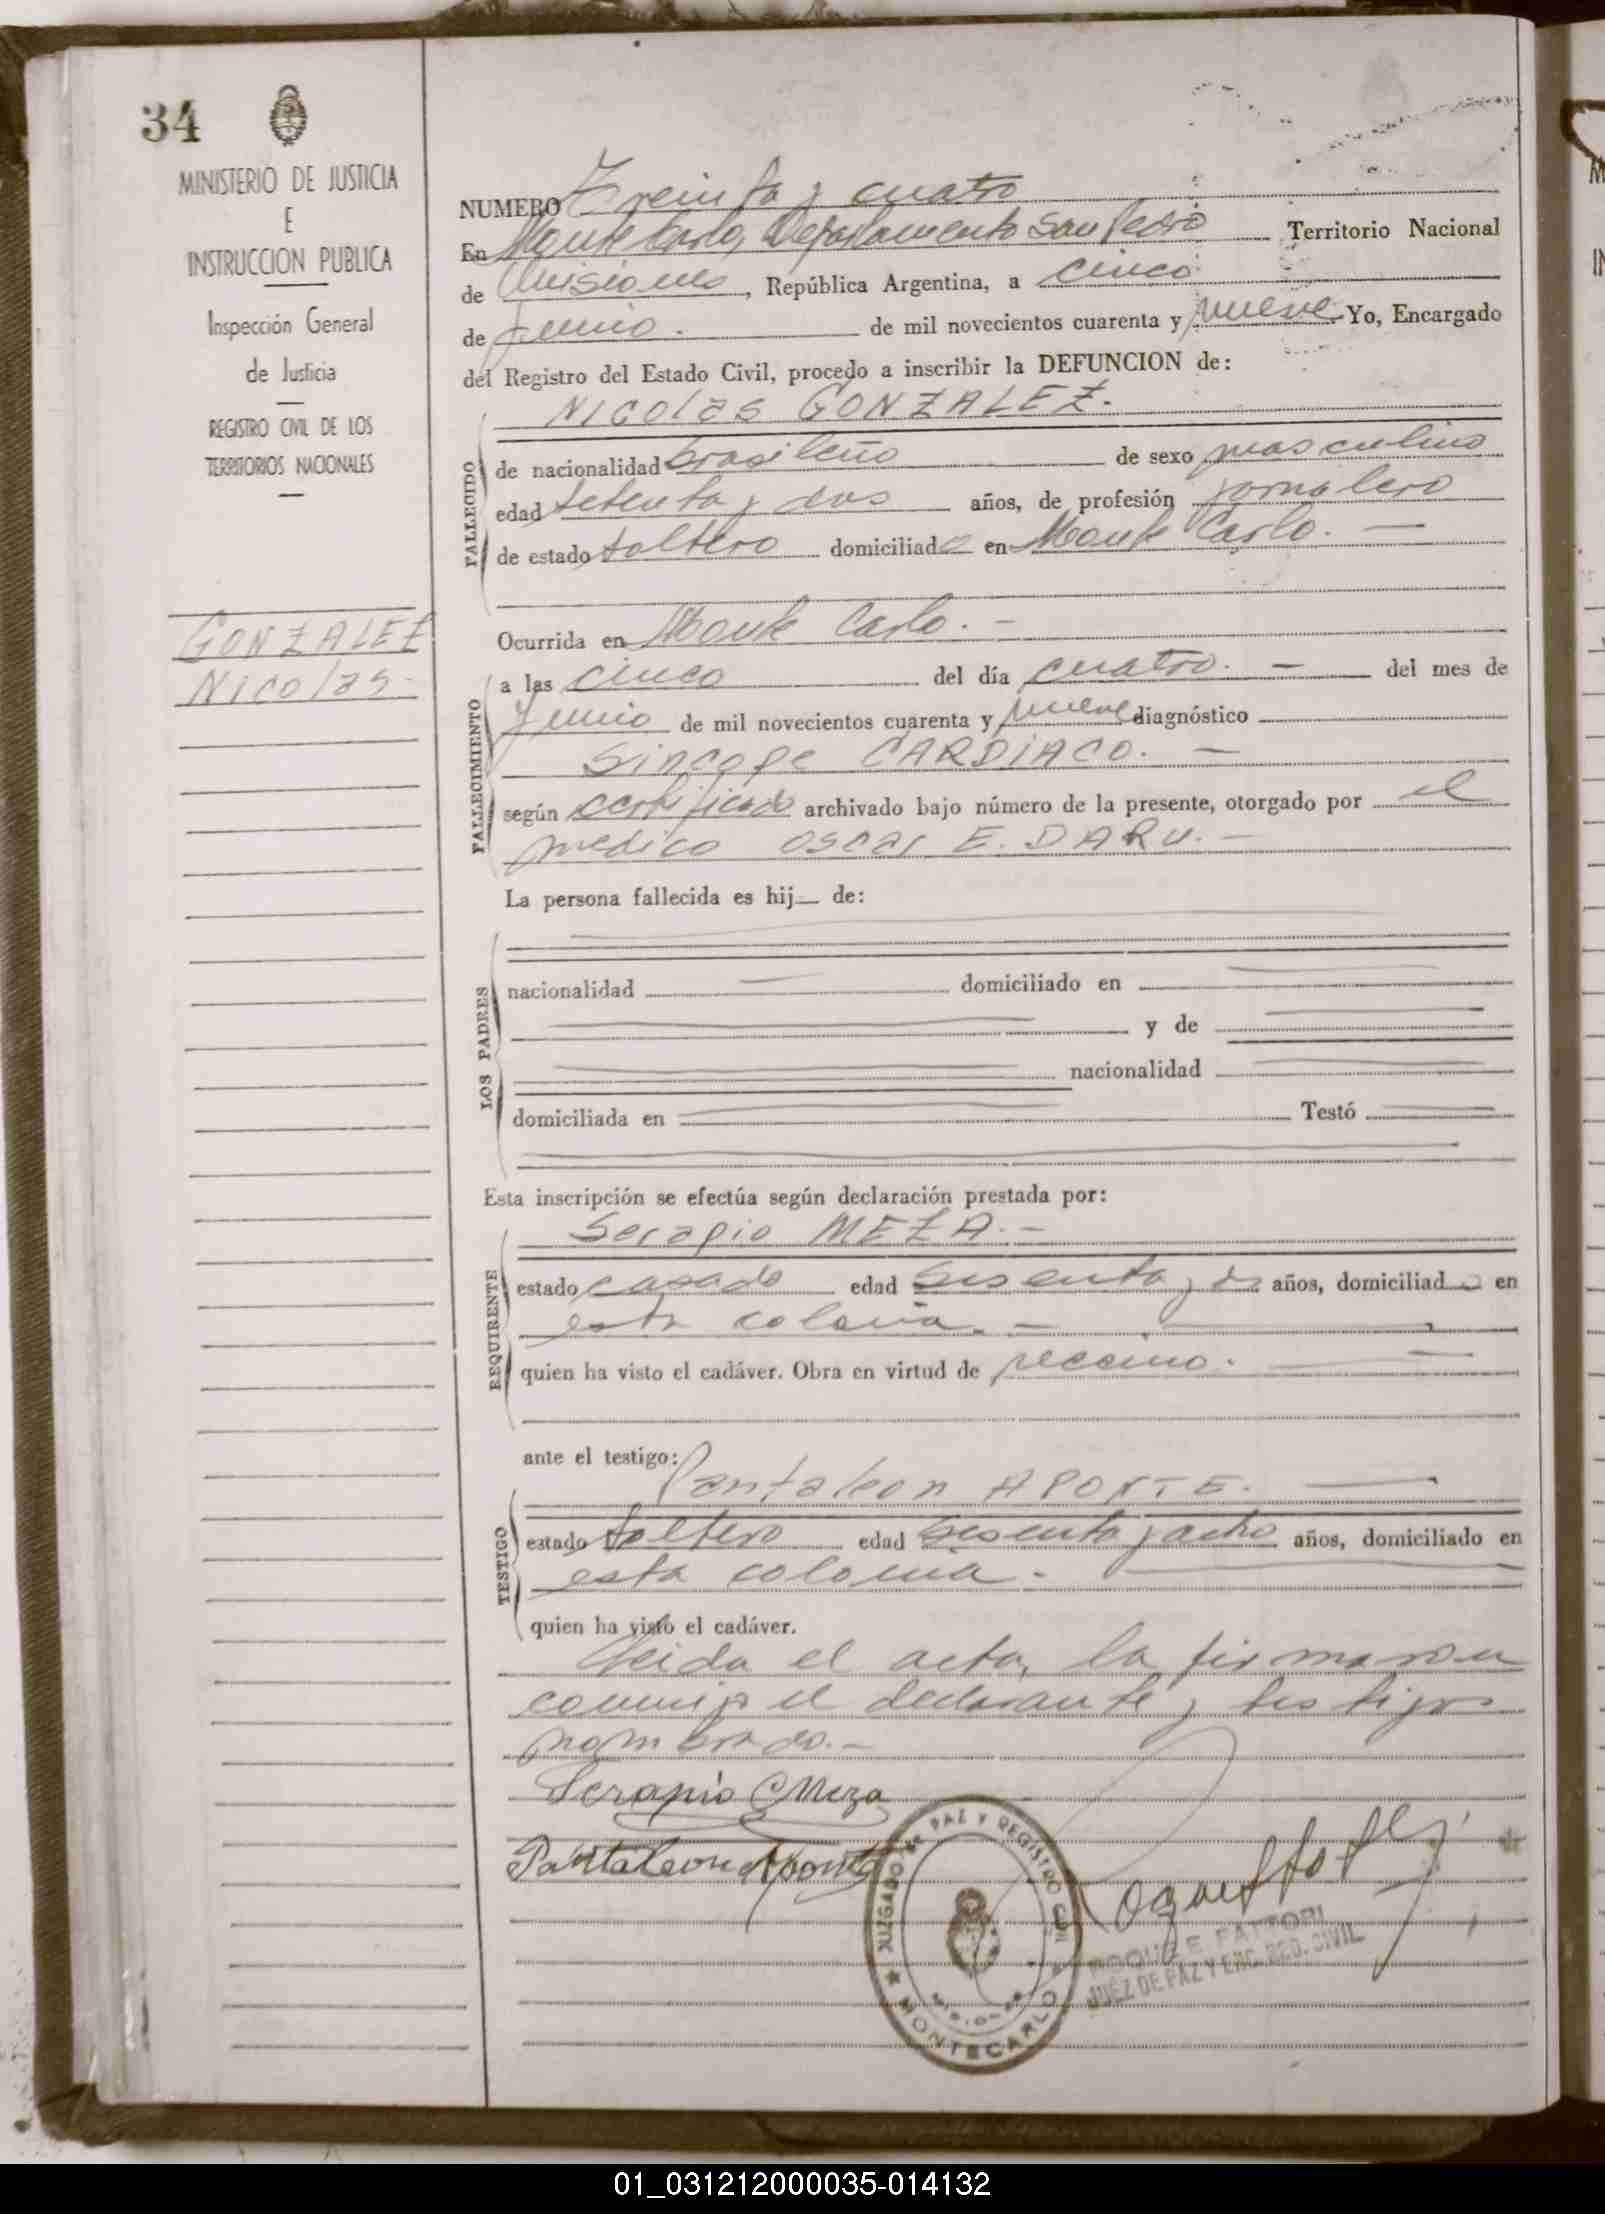 34
MINISTERIO DE JUSTICIA
E
INSTRUCCION PUBLICA
Inspección General
de Justicia
REGISTRO CIVIL DE LOS
TERRITORIOS NACIONALES
GONZALEZ
Nicolas
NUMERO Treinta y cuatro
En Monte Carlo, Departamento San Pedro Territorio Nacional
de Misiones, República Argentina, a cinco
de Junio. de mil novecientos cuarenta y nueve Yo, Encargado
del Registro del Estado Civil, procedo a inscribir la DEFUNCION de:
Nicolas GONZALEZ.
FALLECIDO
de nacionalidad brasileño de sexo masculino
edad setenta y dos años, de profesión jornalero
de estado soltero domiciliado en Monte Carlo. —
Ocurrida en Monte Carlo. -
FALLECIMIENTO
a las cinco del día cuatro. — del mes de
Junio de mil novecientos cuarenta y nueve diagnóstico
Sincope CARDIACO. —
según certificado archivado bajo número de la presente, otorgado por el
medico Oscar E. DARU. —
La persona fallecida es hij de:
LOS PADRES
nacionalidad domiciliado en
y de
nacionalidad
domiciliada en Testó
Esta inscripción se efectúa según declaración prestada por:
Serapio MEZA. -
REQUIRENTE
estado casado edad sesenta y años, domiciliado en
esta colonia. —
quien ha visto el cadáver. Obra en virtud de vecino.
ante el testigo:
Pantaleon APONTE. —
TESTIGO
estado soltero edad sesenta y ocho años, domiciliado en
esta colonia. —
quien ha visto el cadáver.
Leida el acta, la firmaron
conmigo el declarante y testigo
nombrado. -
Serapio Meza
Pantaleon Aponte
JUZGADO DE PAZ Y REGISTRO CIVIL
MISIONES
MONTECARLO
ROQUE E. FATTORI
JUEZ DE PAZ Y ENC. REG. CIVIL
01_031212000035-014132